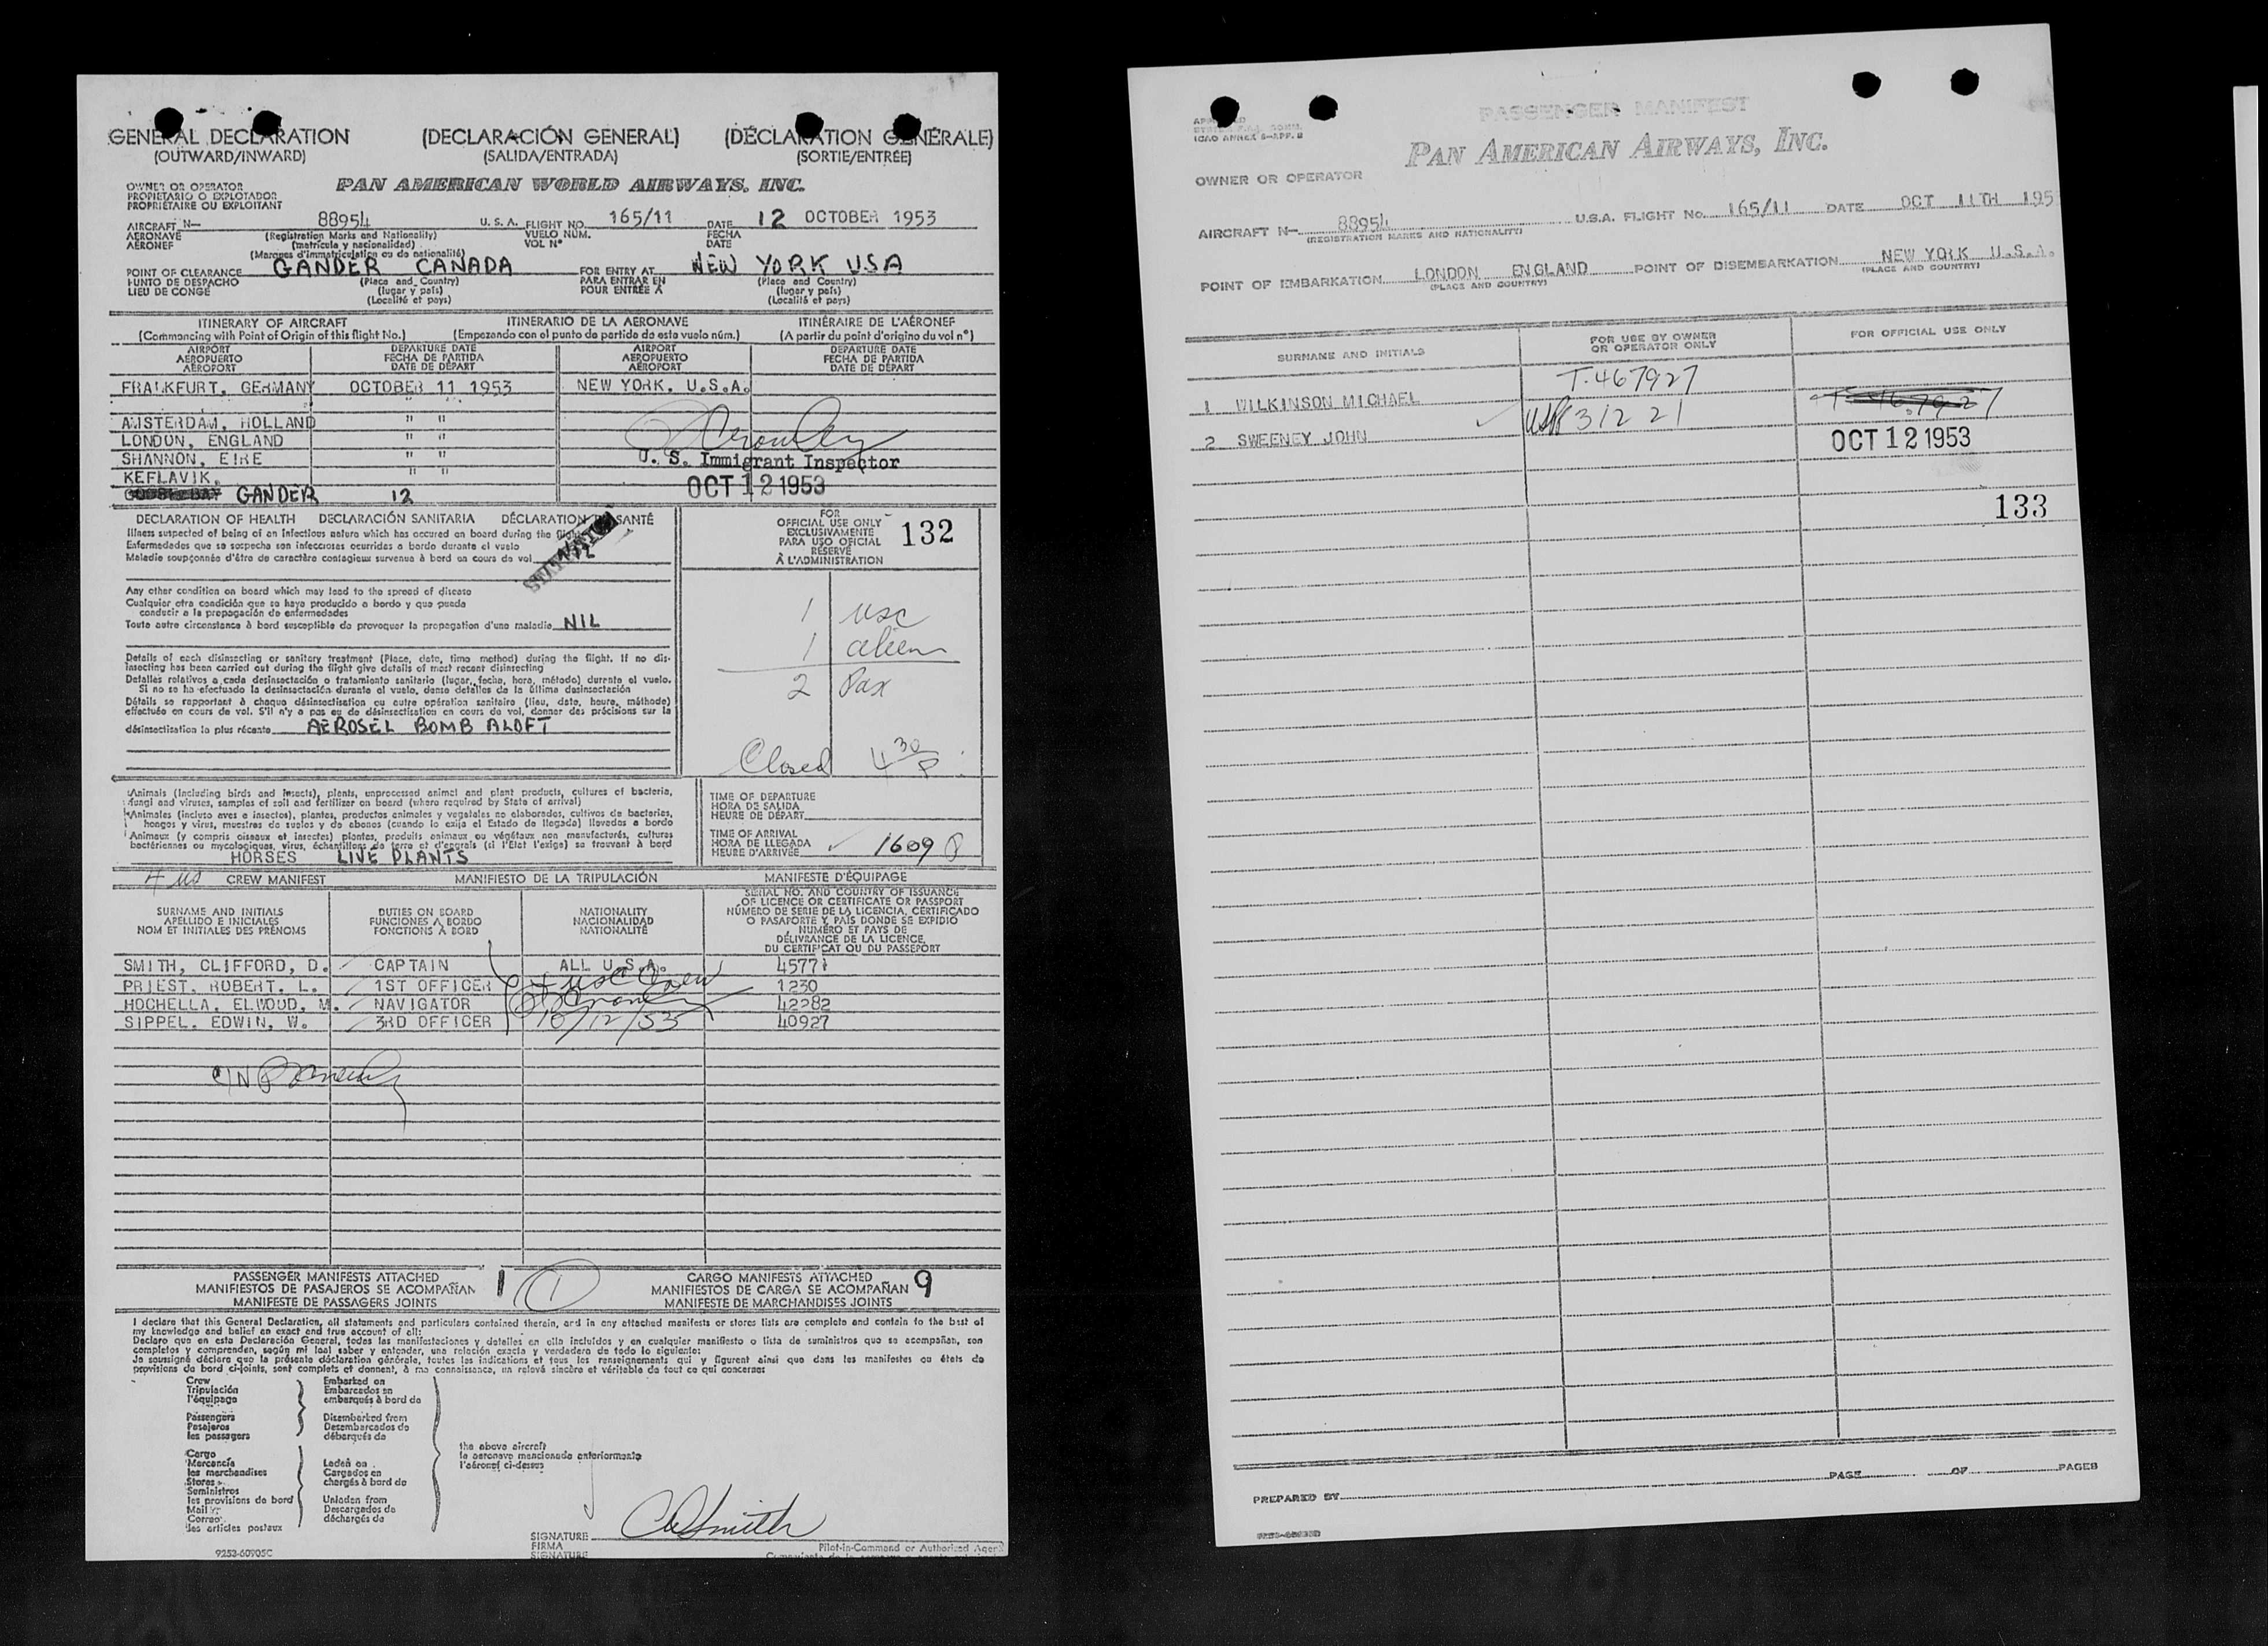 GENERAL DECLARATION (DECLARACIÓN GENERAL) (DÉCLARATION GÉNÉRALE)
(OUTWARD/INWARD) (SALIDA/ENTRADA) (SORTIE/ENTRÉE)
OWNER OR OPERATOR
PROPIETARIO O EXPLOTADOR
PROPRIÉTAIRE OU EXPLOITANT
PAN AMERICAN WORLD AIRWAYS, INC.
AIRCRAFT N— 88954 U. S. A. FLIGHT NO. 165/11 DATE 12 OCTOBER 1953
AERONAVE (Registration Marks and Nationality) VUELO NÚM. FECHA
AÉRONEF (matrícula y nacionalidad) VOL Nº DATE
(Marques d'immatriculation ou de nationalité)
POINT OF CLEARANCE GANDER CANADA FOR ENTRY AT NEW YORK USA
PUNTO DE DESPACHO (Place and Country) PARA ENTRAR EN (Place and Country)
LIEU DE CONGÉ (lugar y país) POUR ENTRÉE À (lugar y país)
(Localité et pays) (Localité et pays)
ITINERARY OF AIRCRAFT ITINERARIO DE LA AERONAVE ITINÉRAIRE DE L'AÉRONEF
(Commencing with Point of Origin of this flight No.) (Empezando con el punto de partida de este vuelo núm.) (A partir du point d'origine du vol nº)
AIRPORT DEPARTURE DATE AIRPORT DEPARTURE DATE
AEROPUERTO FECHA DE PARTIDA AEROPUERTO FECHA DE PARTIDA
AÉROPORT DATE DE DÉPART AÉROPORT DATE DE DÉPART
FRALKFURT, GERMANY OCTOBER 11 1953 NEW YORK, U.S.A.
" "
AMSTERDAM, HOLLAND " "
LONDON, ENGLAND " "
SHANNON, EIRE " "
U. S. Immigrant Inspector
KEFLAVIK, " "
OCT 12 1953
GANDER 12
DECLARATION OF HEALTH DECLARACIÓN SANITARIA DÉCLARATION DE SANTÉ
Illness suspected of being of an infectious nature which has occured on board during the flight
Enfermedades que se sospecha son infecciosas ocurridas a bordo durante el vuelo
Maladie soupçonnée d'être de caractère contagieux survenue à bord en cours de vol
FOR
OFFICIAL USE ONLY
EXCLUSIVAMENTE
PARA USO OFICIAL
RÉSERVÉ
À L'ADMINISTRATION
132
Any other condition on board which may lead to the spread of disease
Cualquier otra condición que se haya producido a bordo y que pueda
conducir a la propagación de enfermedades
Toute autre circonstance à bord susceptible de provoquer la propagation d'une maladie NIL
1 usc
1 alien
2 Pax
Closed 4 30 P
Details of each disinsecting or sanitary treatment (Place, date, time method) during the flight. If no dis-
insecting has been carried out during the flight give details of most recent disinsecting
Detalles relativos a cada desinsectación o tratamiento sanitario (lugar, fecha, hora, método) durrnte el vuelo.
Si no se ha efectuado la desinsectación durante el vuelo, dense detalles de la última desinsectación
Détails se rapportant à chaque désinsectisation ou autre opération sanitaire (lieu, date, heure, méthode)
effectuée en cours de vol. S'il n'y a pas eu de désinsectisation en cours de vol, donner des précisions sur la
désinsectisation la plus récente AEROSEL BOMB ALOFT
Animals (including birds and insects), plants, unprocessed animal and plant products, cultures of bacteria,
fungi and viruses, samples of soil and fertilizer on board (where required by State of arrival)
Animales (incluso aves e insectos), plantas, productos animales y vegetales no elaborados, cultivos de bacterias,
hongos y virus, muestras de suelos y de abonos (cuando lo exija el Estado de llegada) llevados a bordo
Animaux (y compris oiseaux et insectes) plantes, produits animaux ou végétaux non manufacturés, cultures
bactériennes ou mycologiques, virus, échantillons de terre et d'engrais (si l'État l'exige) se trouvant à bord
HORSES LIVE PLANTS
TIME OF DEPARTURE
HORA DE SALIDA
HEURE DE DÉPART
TIME OF ARRIVAL
HORA DE LLEGADA
HEURE D'ARRIVÉE 1609 P
4 us CREW MANIFEST MANIFIESTO DE LA TRIPULACIÓN MANIFESTE D'ÉQUIPAGE
SURNAME AND INITIALS
APELLIDO E INICIALES
NOM ET INITIALES DES PRÉNOMS
DUTIES ON BOARD
FUNCIONES A BORDO
FONCTIONS À BORD
NATIONALITY
NACIONALIDAD
NATIONALITÉ
SERIAL NO. AND COUNTRY OF ISSUANCE
OF LICENCE OR CERTIFICATE OR PASSPORT
NÚMERO DE SERIE DE LA LICENCIA, CERTIFICADO
O PASAPORTE Y PAÍS DONDE SE EXPIDIO
NUMÉRO ET PAYS DE
DÉLIVRANCE DE LA LICENCE,
DU CERTIFICAT OU DU PASSEPORT
SMITH, CLIFFORD, D. CAPTAIN ALL U.S.A. 45771
PRIEST, ROBERT, L. 1ST OFFICER 4 usc Crew 1230
HOCHELLA, ELWOUD, M. NAVIGATOR 42282
SIPPEL, EDWIN, W. 3RD OFFICER 10/12/53 40927
PASSENGER MANIFESTS ATTACHED
MANIFIESTOS DE PASAJEROS SE ACOMPAÑAN 1 1
MANIFESTE DE PASSAGERS JOINTS
CARGO MANIFESTS ATTACHED
MANIFIESTOS DE CARGA SE ACOMPAÑAN 9
MANIFESTE DE MARCHANDISES JOINTS
I declare that this General Declaration, all statements and particulars contained therein, and in any attached manifests or stores lists are complete and contain to the best of
my knowledge and belief an exact and true account of all:
Declaro que en esta Declaración General, todas las manifestaciones y detalles en ella incluidos y en cualquier manifiesto o lista de suministros que se acompañan, son
completos y comprenden, según mi leal saber y entender, una relación exacta y verdadera de todo lo siguiente:
Je soussigné déclare que la présente déclaration générale, toutes les indications et tous les renseignements qui y figurent ainsi que dans les manifestes ou états de
provisions de bord ci-joints, sont complets et donnent, à ma connaissance, un relevé sincère et véritable de tout ce qui concernes
Crew Embarked on
Tripulación Embarcados en
l'équipage embarqués à bord de
Passengers Disembarked from
Pasajeros Desembarcados de
les passagers débarqués de
the above aircraft
la aeronave mencionada anteriormente
l'aéronef ci-dessus
Cargo
Mercancía Laden on
les marchandises Cargados en
Stores chargés à bord de
Suministros
les provisions de bord Unladen from
Mail Descargados de
Correo déchargés de
les articles postaux
SIGNATURE CDSmith
FIRMA Pilot-in-Command or Authorized Agent
SIGNATURE
9253-60905C
PASSENGER MANIFEST
ICAO ANNEX 9—APP. B
PAN AMERICAN AIRWAYS, INC.
OWNER OR OPERATOR
AIRCRAFT N— 88954 U.S.A. FLIGHT No. 165/11 DATE OCT 11TH 195
(REGISTRATION MARKS AND NATIONALITY)
POINT OF EMBARKATION LONDON ENGLAND POINT OF DISEMBARKATION NEW YORK U.S.A.
(PLACE AND COUNTRY) (PLACE AND COUNTRY)
SURNAME AND INITIALS FOR USE BY OWNER OR OPERATOR ONLY FOR OFFICIAL USE ONLY
1 WILKINSON MICHAEL T-467927 T-467927
2 SWEENEY JOHN USP 31221 OCT 12 1953
133
PREPARED BY PAGE OF PAGES